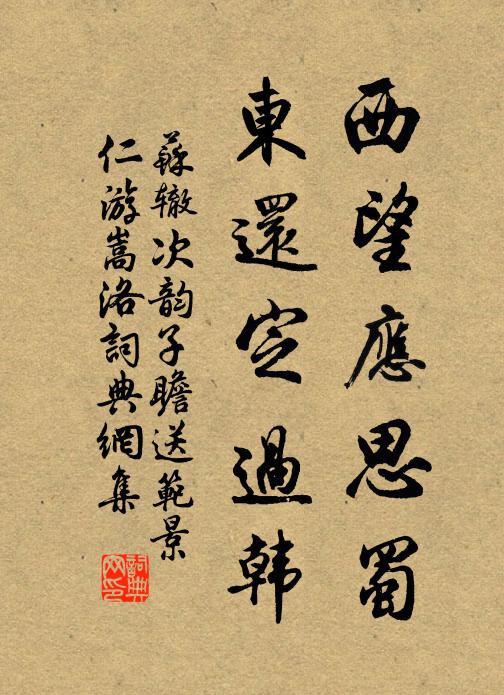 西望應思蜀
東還定過韩
蘇辙次韵子瞻送範景
仁游嵩洛詞典網集
詞典
网印